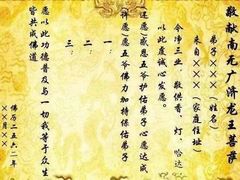 敬献南无广济龙王菩萨
弟子×××(姓名)
来自×××(家庭住址)
今净三业,敬供香、灯、哈达
以此虔诚心发愿。
还愿)感恩五爷护佑弟子心愿达成
许愿)愿五爷佛力加持保佑弟子
一:
二:
三:
愿以此功德普及与一切我等于众生
皆共成佛道
佛历二五六二年
××月××